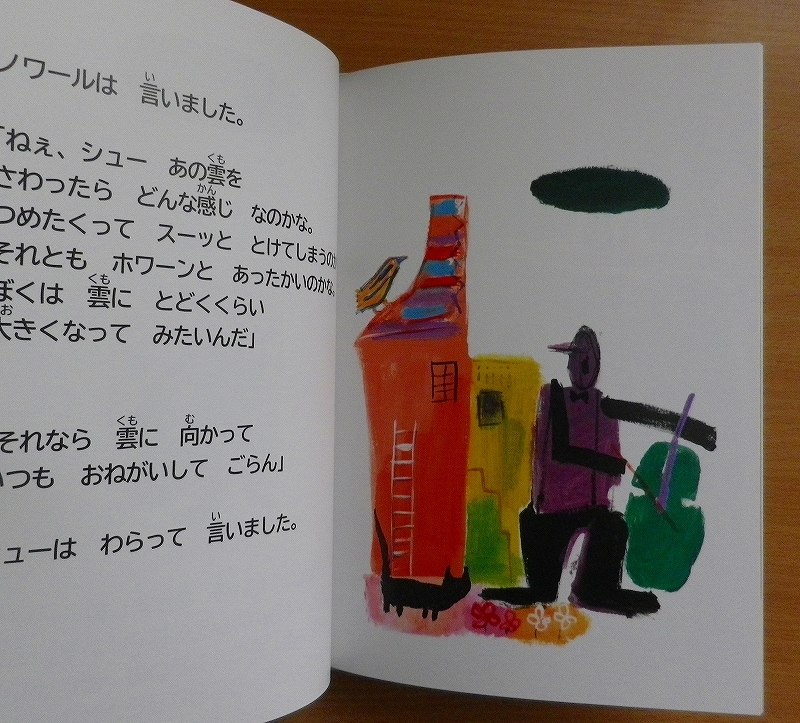 ノワールは 言いました。
「ねぇ、シュー あの雲を
さわったら どんな感じ なのかな。
つめたくって スーッと とけてしまうのか
それとも ホワーンと あったかいのかな。
ぼくは 雲に とどくくらい
大きくなって みたいんだ」
それなら 雲に 向かって
いつも おねがいして ごらん」
ューは わらって 言いました。